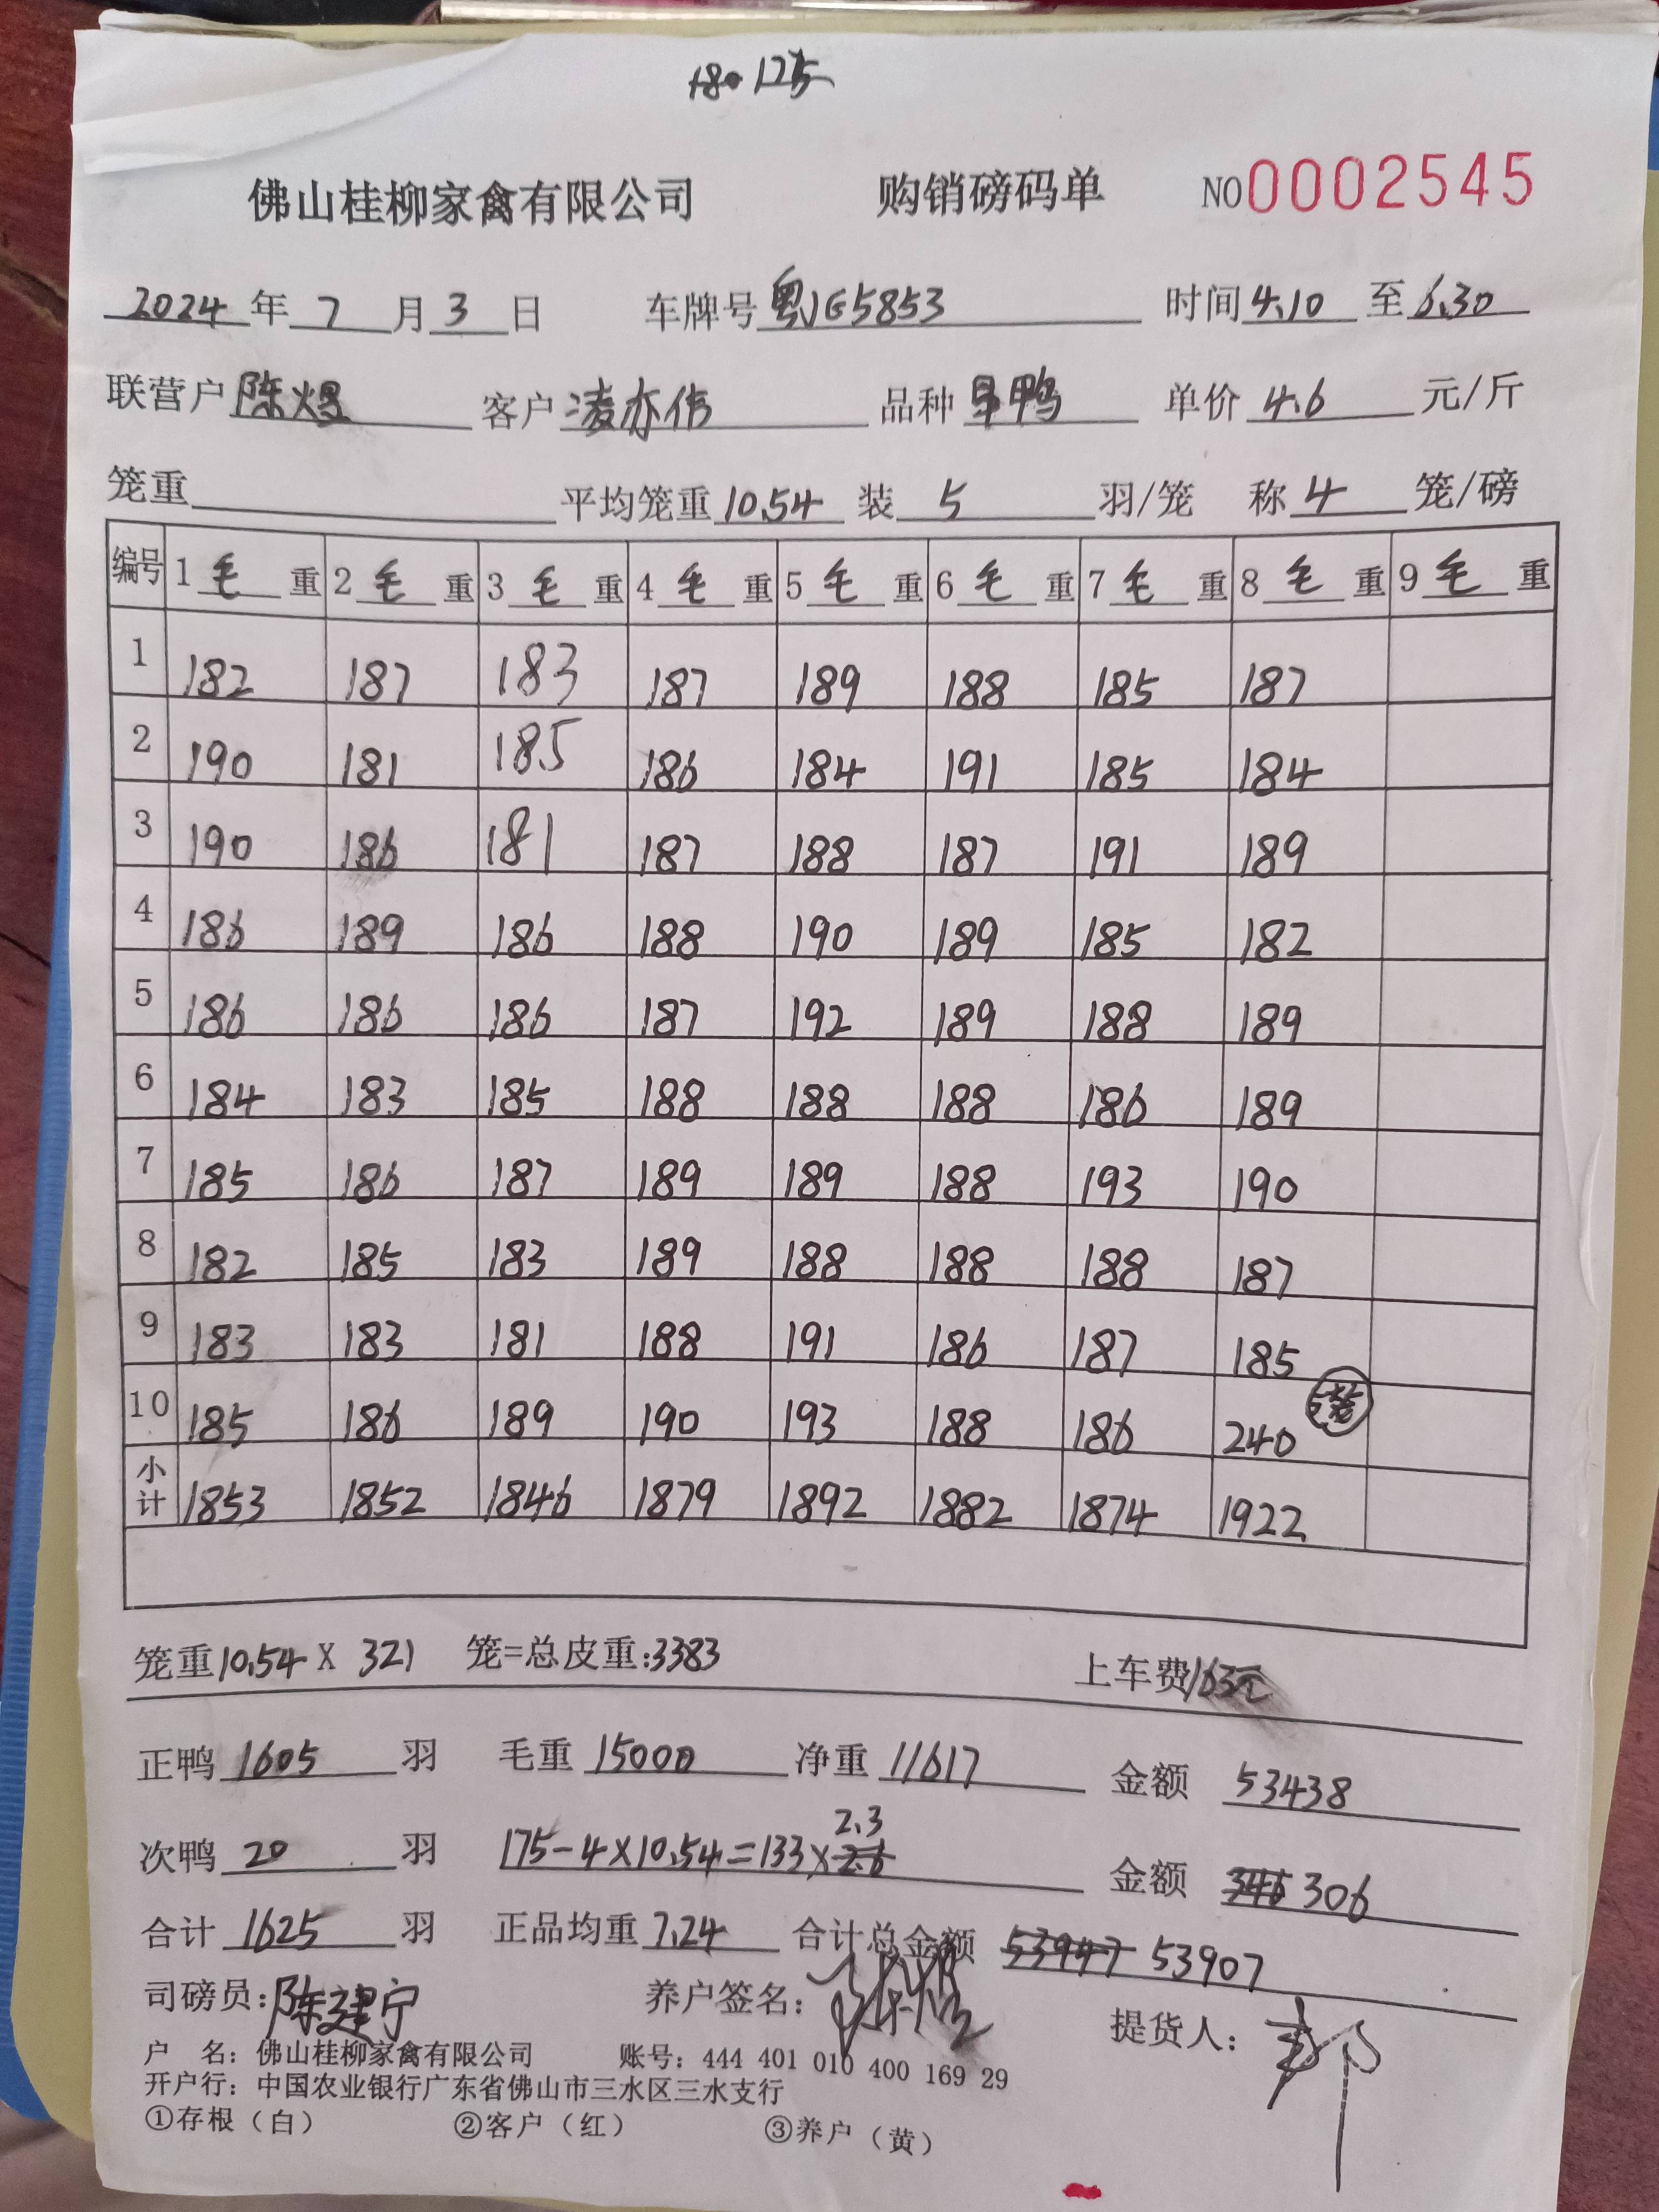 180 175
佛山桂柳家禽有限公司 购销磅码单 NO0002545
2024年7月3日 车牌号粤JG5853 时间4.10至6.30
联营户陈煜 客户凌亦伟 品种鸭 单价4.6元/斤
笼重 平均笼重10.54 装5羽/笼 称4笼/磅
编号 1毛重 2毛重 3毛重 4毛重 5毛重 6毛重 7毛重 8毛重 9毛重
1 182 187 183 187 189 188 185 187
2 190 181 185 186 184 191 185 184
3 190 186 181 187 188 187 191 189
4 186 189 186 188 190 189 185 182
5 186 186 186 187 192 189 188 189
6 184 183 185 188 188 188 186 189
7 185 186 187 189 189 188 193 190
8 182 185 183 189 188 188 188 187
9 183 183 181 188 191 186 187 185
10 185 186 189 190 193 188 186 240 5笼
小计 1853 1852 1846 1879 1892 1882 1874 1922
笼重10.54 X 321 笼=总皮重:3383 上车费163元
正鸭1605羽 毛重15000 净重11617 金额53438
2.3
次鸭20羽 175-4×10.54=133×2.6 金额346 306
合计1625羽 正品均重7.24 合计总金额53947 53907
司磅员:陈建宁 养户签名: 提货人:
户 名:佛山桂柳家禽有限公司 账号:444 401 010 400 169 29
开户行:中国农业银行广东省佛山市三水区三水支行
①存根(白) ②客户(红) ③养户(黄)